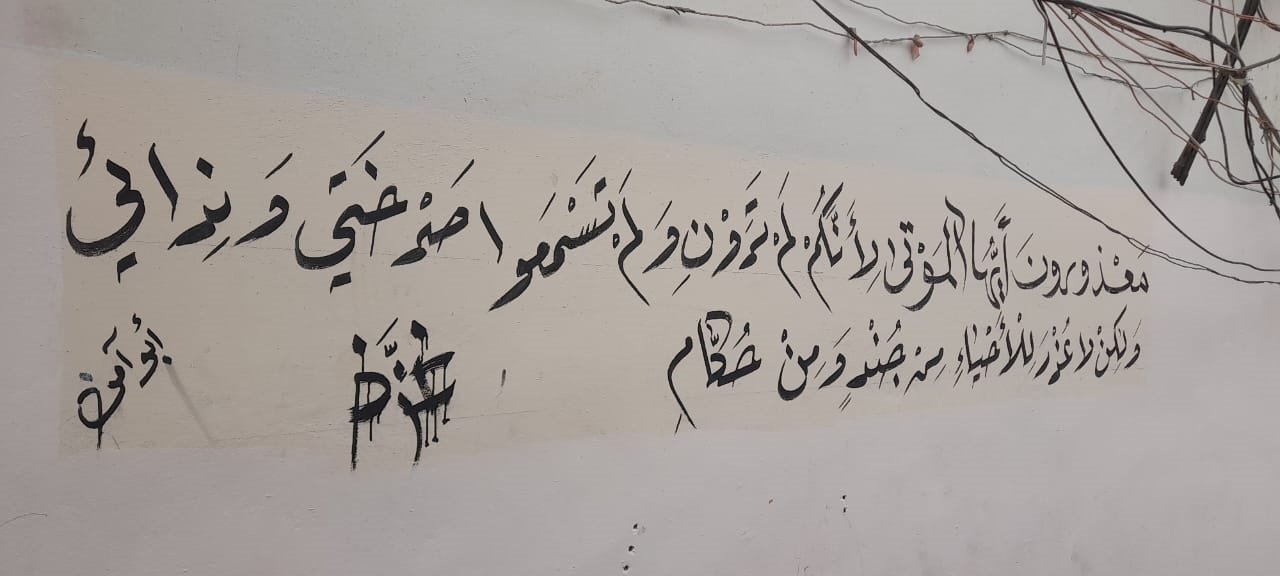 مَعْذورونَ أَيُّها المَوْتى لِأَنَّكُمْ لَمْ تَرَوْنِ وَلَمْ تَسْمَعوا صَرْخَتي وَنِدائي
وَلكِنْ لا عُذْرَ لِلْأَحْياءِ مِنْ جُنْدٍ وَمِنْ حُكّام